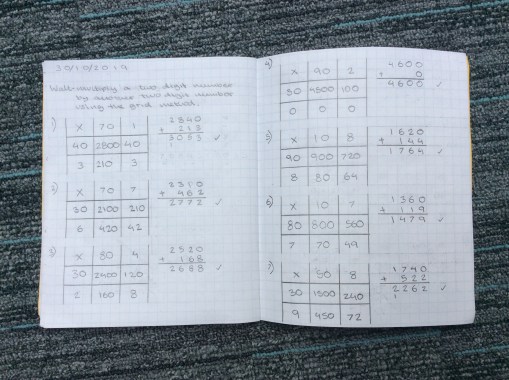 30/10/2019
Walt-multiply a two digit number
by another two digit number
using the grid method.
1) x 70 1
40 2800 40
3 210 3
2840
+ 213
3053 ✓
2) x 70 7
30 2100 210
6 420 42
2310
+ 462
2772 ✓
3) x 80 4
30 2400 120
2 160 8
2520
+ 168
2688 ✓
4) x 90 2
50 4500 100
0 0 0
4600
+ 0
4600 ✓
5) x 10 8
90 900 720
8 80 64
1620
+ 144
1764 ✓
6) x 10 7
80 800 560
7 70 49
1360
+ 119
1479 ✓
7) x 50 8
30 1500 240
9 450 72
1740
+ 522
2262 ✓
1